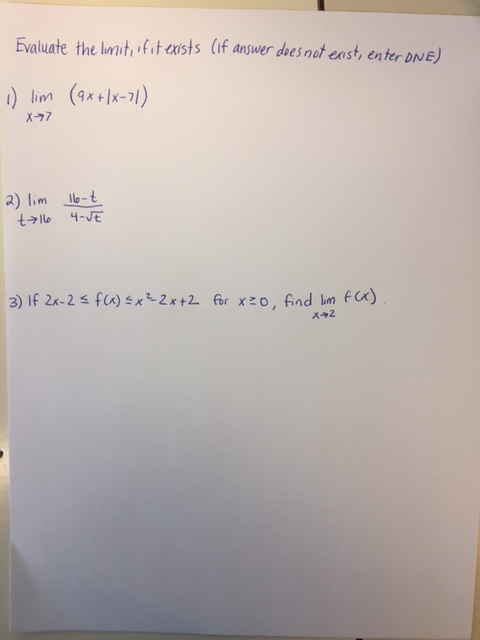 Evaluate the limit, if it exists (if answer does not exist, enter DNE)
1) lim (9x+|x-7|)
x→7
2) lim 16-t
t→16 4-√t
3) If 2x-2 ≤ f(x) ≤ x²-2x+2 for x≥0, find lim f(x).
x→2